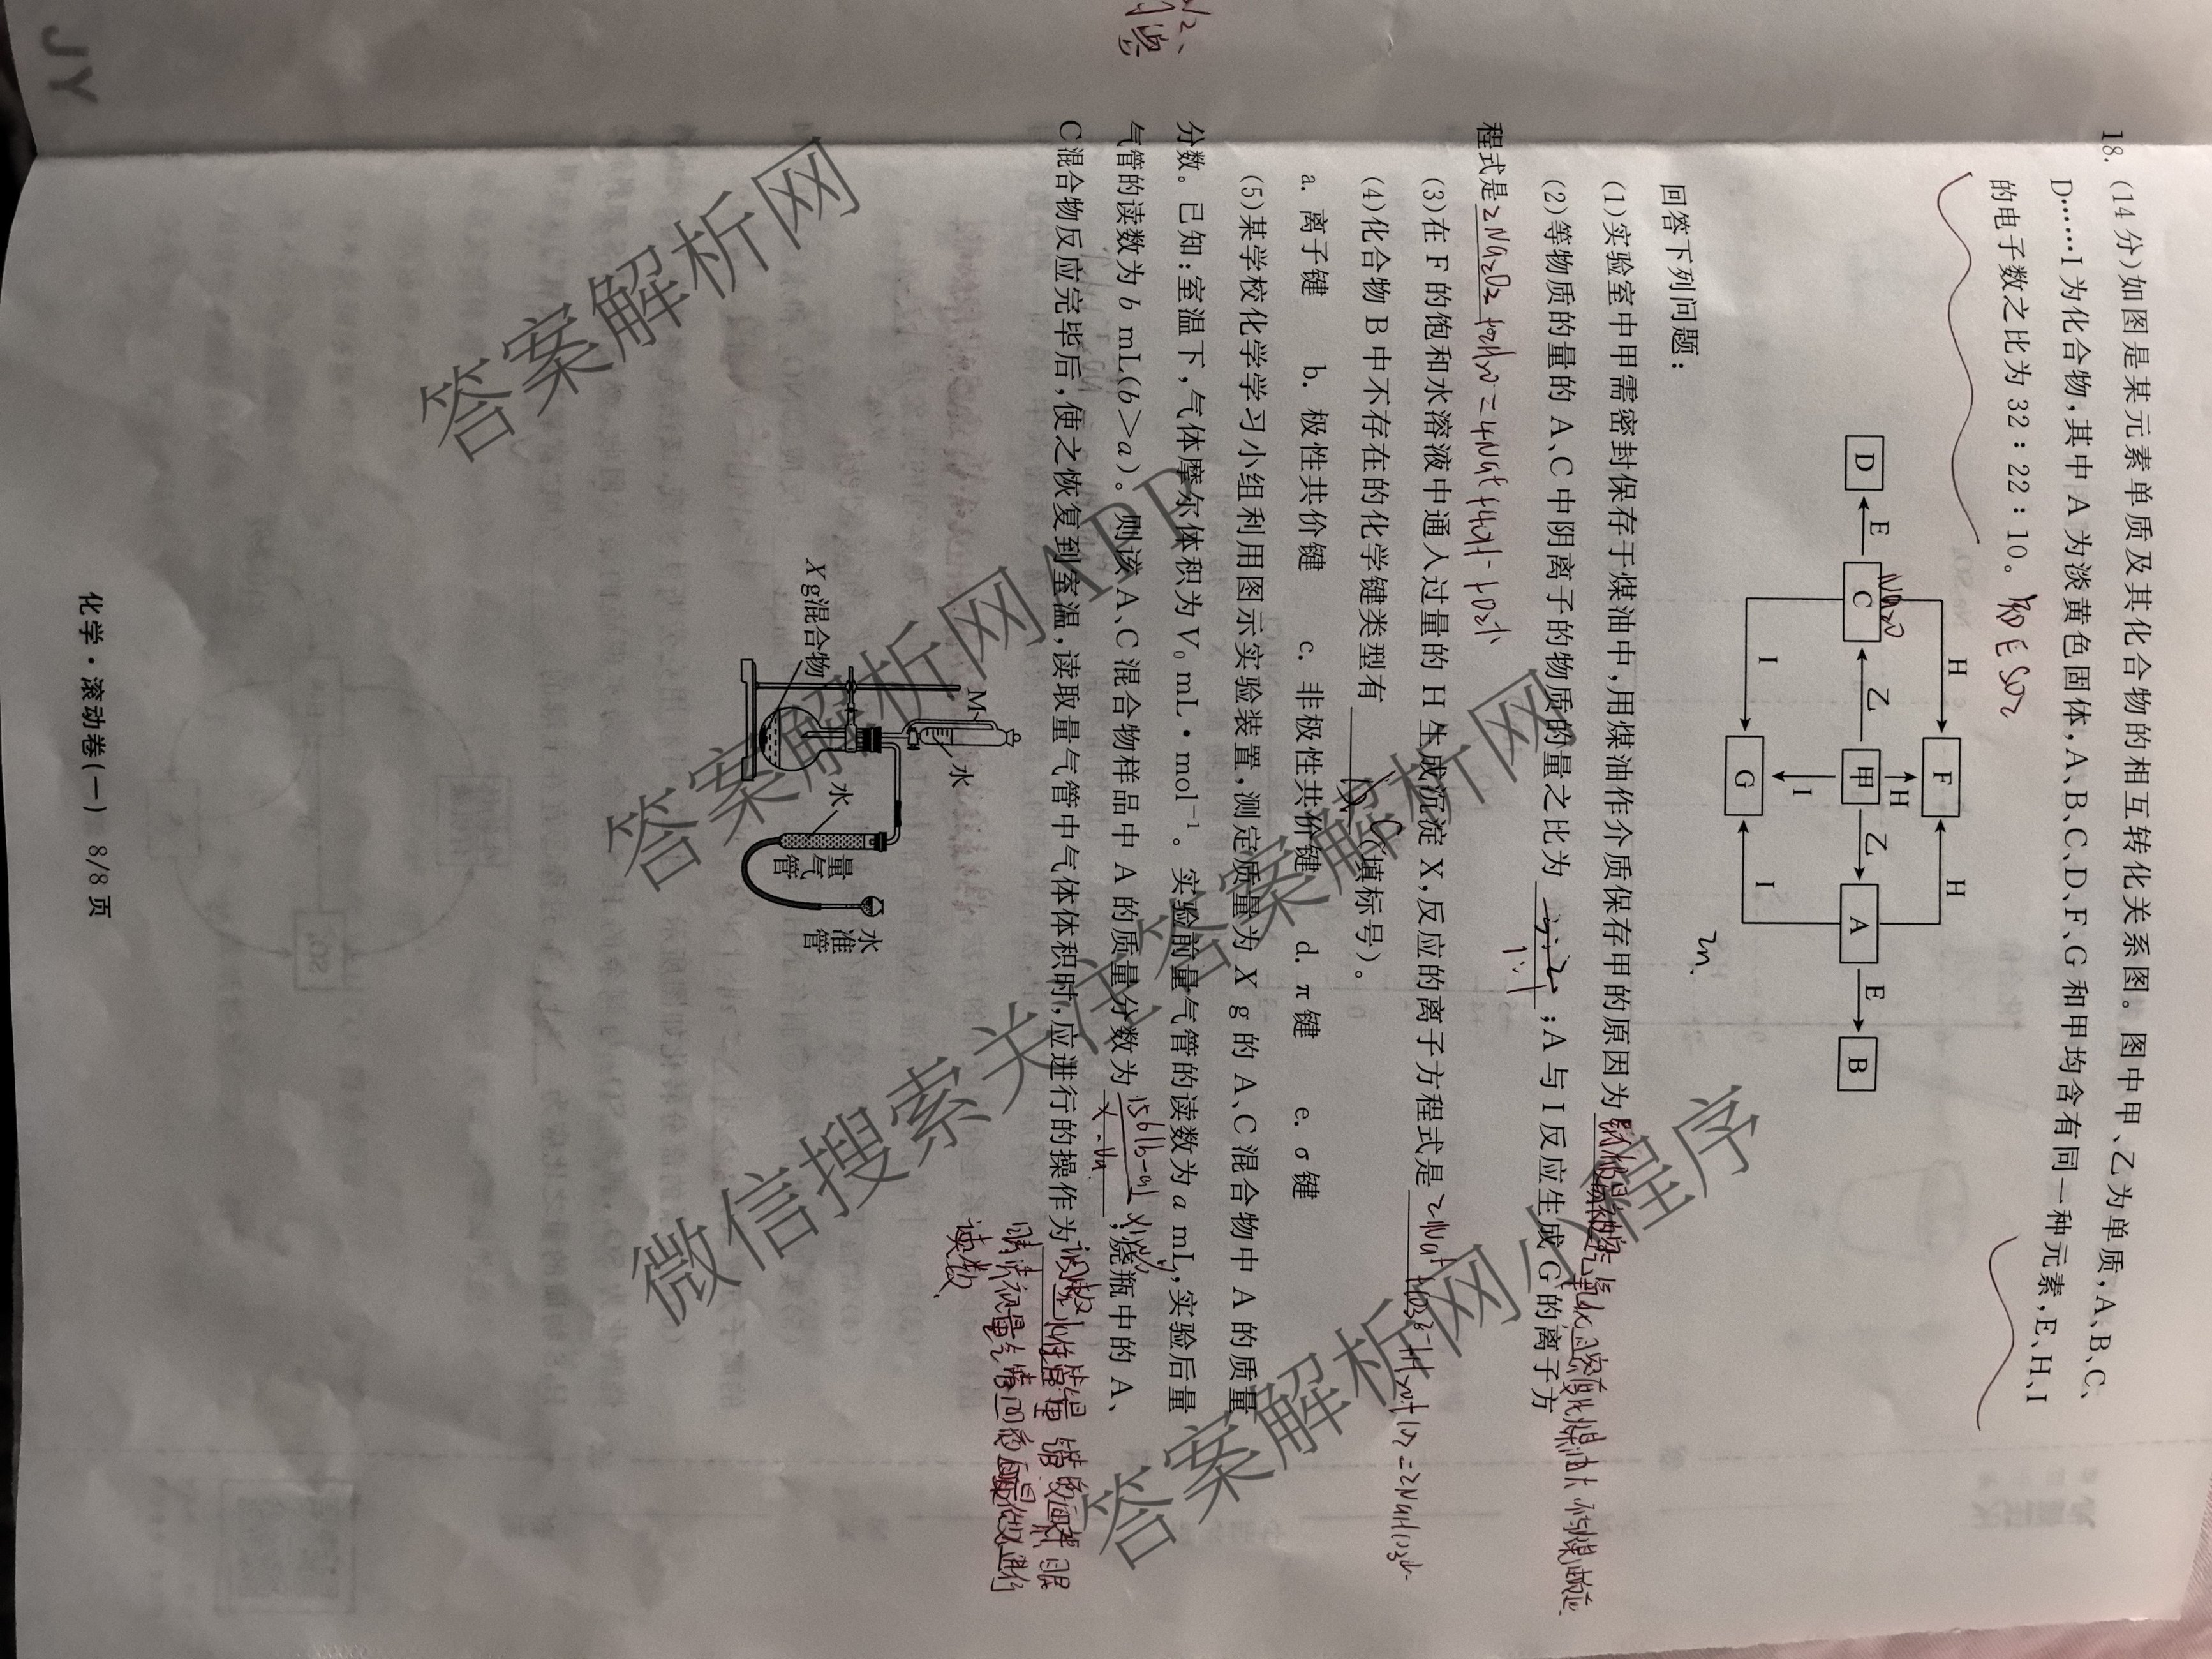 18. (14分)如图是某元素单质及其化合物的相互转化关系图。图中甲、乙为单质,A、B、C、
D……I为化合物,其中A为淡黄色固体,A、B、C、D、F、G和甲均含有同一种元素,E、H、I
的电子数之比为32∶22∶10。
知E SO₂
H F H
D E C 乙 甲 乙 A E B
Na₂O
H
I
I G I
回答下列问题:
(1)实验室中甲需密封保存于煤油中,用煤油作介质保存甲的原因为
(2)等物质的量的A、C中阴离子的物质的量之比为 1:1 ;A与I反应生成G的离子方
程式是 2Na₂O₂+2H₂O=4Na⁺+4OH⁻+O₂↑
(3)在F的饱和水溶液中通入过量的H生成沉淀X,反应的离子方程式是 2Na⁺+CO₃²⁻+H₂O+CO₂=2NaHCO₃↓
(4)化合物B中不存在的化学键类型有 C (填标号)。
a. 离子键 b. 极性共价键 c. 非极性共价键 d. π键 e. σ键
(5)某学校化学学习小组利用图示实验装置,测定质量为X g的A、C混合物中A的质量
分数。已知:室温下,气体摩尔体积为V₀ mL·mol⁻¹。实验前量气管的读数为a mL,实验后量
气管的读数为b mL(b>a)。则该A、C混合物样品中A的质量分数为 ;烧瓶中的A、
C混合物反应完毕后,使之恢复到室温,读取量气管中气体体积时,应进行的操作为
读数
M
水
X g混合物
水
量气管
水准管
化学·滚动卷(一) 8/8页
JY
答案解析网
答案解析网APP
微信搜索关注答案解析网
答案解析网小程序